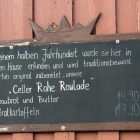 einem halben Jahrhundert wurde sie hier in
Hause erfunden und wird traditionsbewusst
original zubereitet, unsere
"Celler Rohe Roulade"
aubrot und Butter 14.90
Bratkartoffeln 17.30